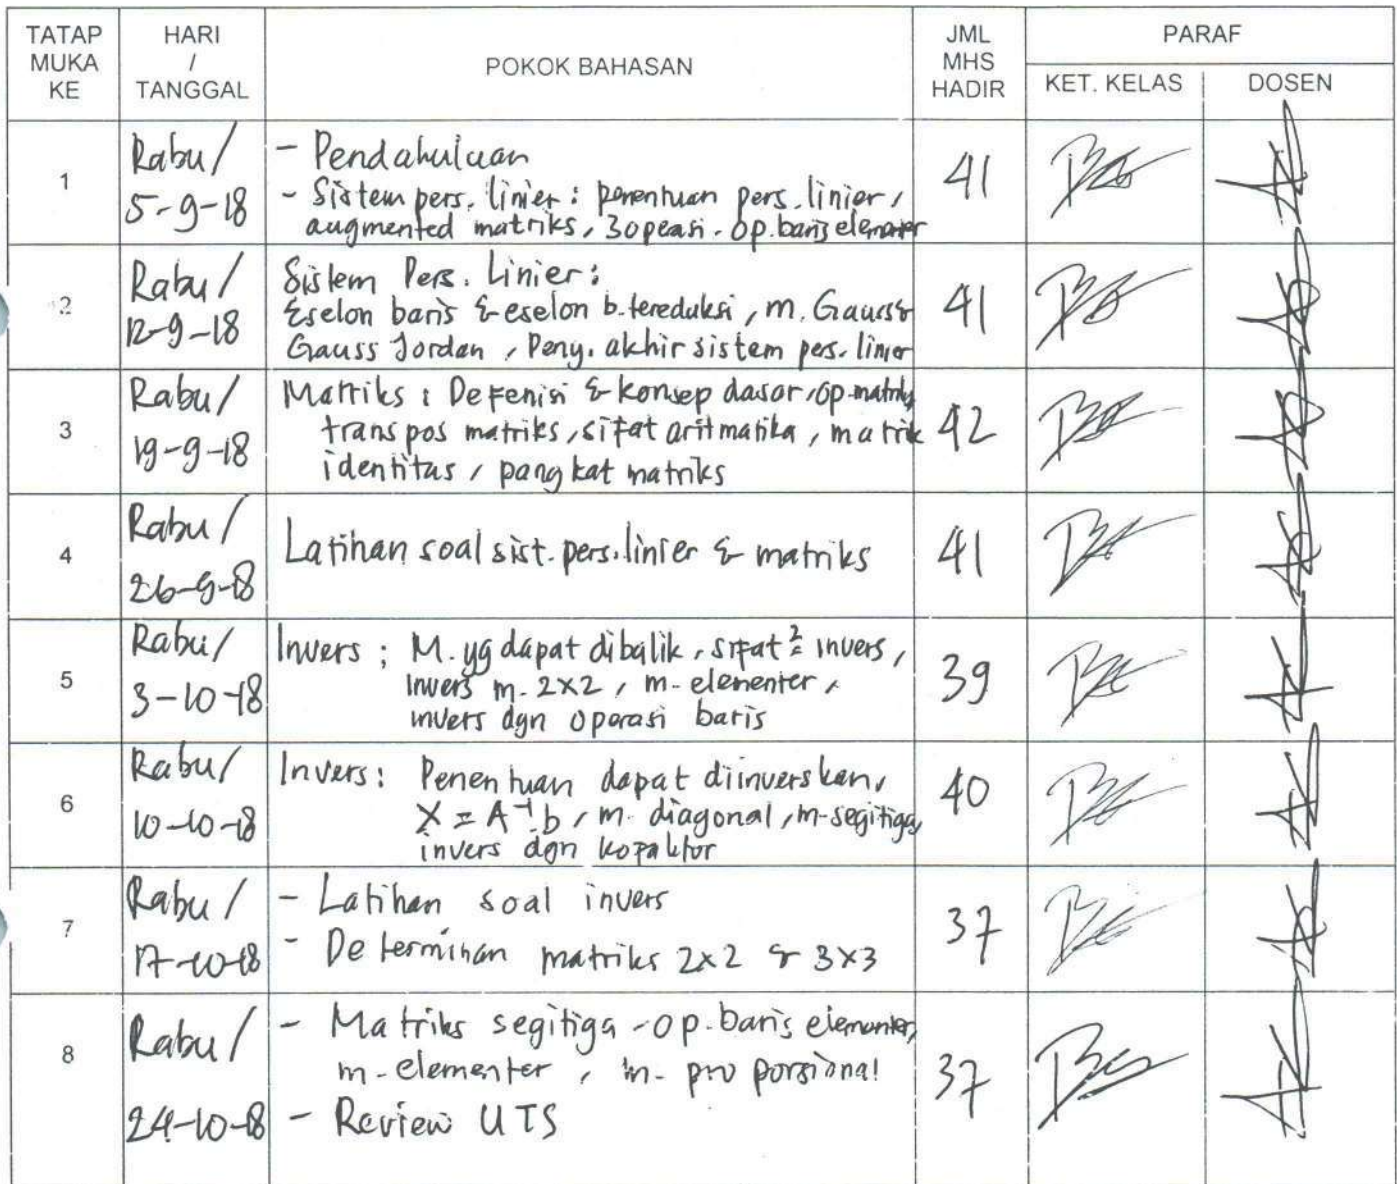 TATAP MUKA KE
HARI / TANGGAL
POKOK BAHASAN
JML MHS HADIR
PARAF
KET. KELAS
DOSEN
1
Rabu/
5-9-18
- Pendahuluan
- Sistem pers. linier : penentuan pers. linier,
augmented matriks, 3 opeasi - op. baris elementer
41
2
Rabu/
12-9-18
Sistem Pers. Linier :
Eselon baris & eselon b. tereduksi, m. Gauss &
Gauss Jordan, Peny. akhir sistem pers. linier
41
3
Rabu/
19-9-18
Matriks : Defenisi & konsep dasar, op. matriks
transpos matriks, sifat aritmatika, matrik
identitas, pangkat matriks
42
4
Rabu/
26-9-18
Latihan soal sist. pers. linier & matriks
41
5
Rabu/
3-10-18
Invers : M. yg dapat dibalik, sifat² invers,
invers m. 2x2, m. elementer,
invers dgn operasi baris
39
6
Rabu/
10-10-18
Invers : Penentuan dapat diinverskan,
X = A⁻¹b, m. diagonal, m. segitiga,
invers dgn kofaktor
40
7
Rabu/
17-10-18
- Latihan soal invers
- Determinan matriks 2x2 & 3x3
37
8
Rabu/
24-10-18
- Matriks segitiga - op. baris elementer,
m. elementer, m. proporsional
- Review UTS
37